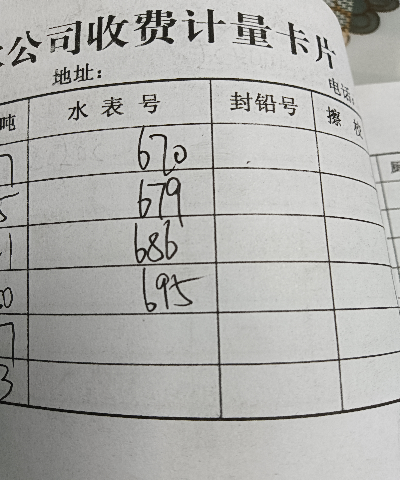 公司收费计量卡片
地址: 电话:
吨 水表号 封铅号 擦校
7 670
5 679
1 686
0 695
7
3